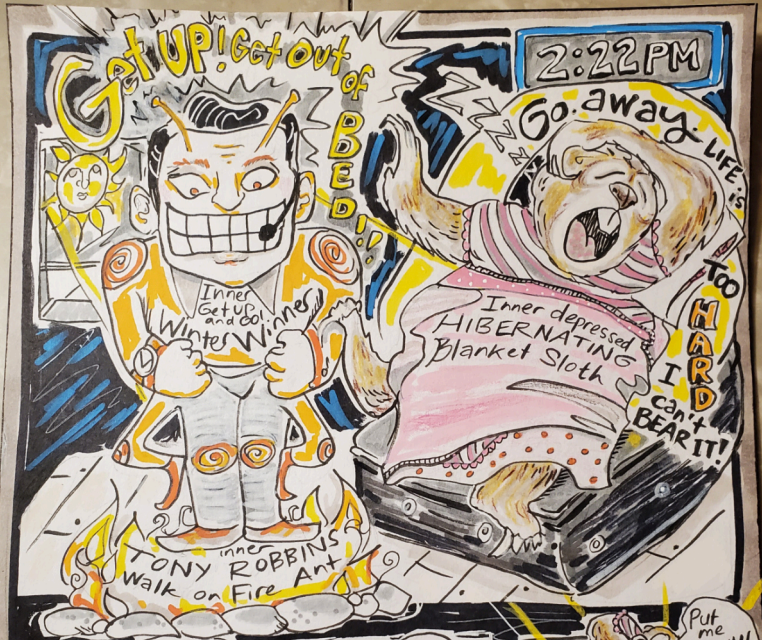 Get UP! Get Out of BED!!
2:22 PM
ZZZZ
Go. away.
LIFE is
TOO
HARD
I
can't
BEAR IT!
Inner
Get up
and Go!
Winter Winner
Inner depressed
HIBERNATING
Blanket Sloth
inner
TONY ROBBINS
Walk on Fire Ant
Put
me